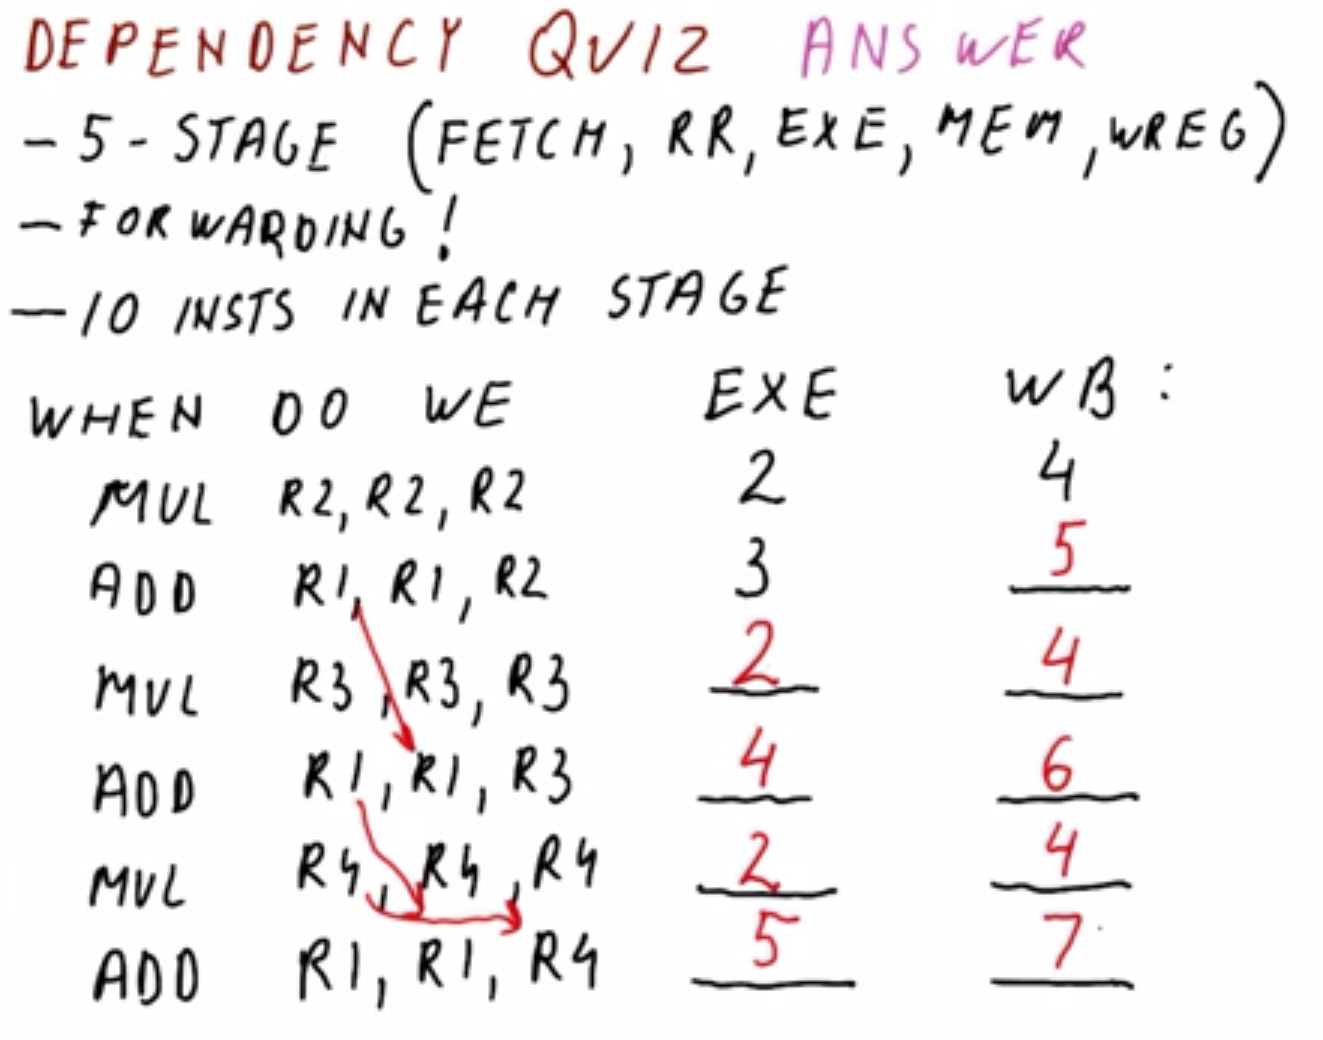 DEPENDENCY QUIZ ANSWER
- 5 - STAGE (FETCH, RR, EXE, MEM, WREG)
- FORWARDING!
- 10 INSTS IN EACH STAGE
WHEN DO WE EXE WB :
MUL R2, R2, R2 2 4
ADD R1, R1, R2 3 5
MUL R3, R3, R3 2 4
ADD R1, R1, R3 4 6
MUL R4, R4, R4 2 4
ADD R1, R1, R4 5 7